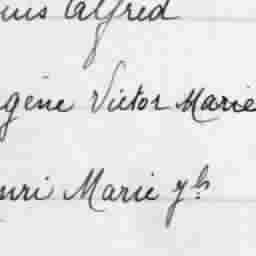 uis Alfred
gène Victor Marie
nri Marie